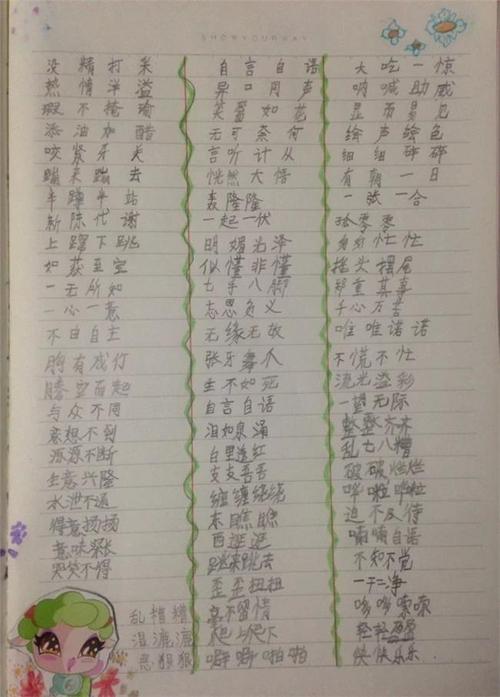 SHOWYOURWAY
没精打采
热情洋溢
瑕不掩瑜
添油加醋
咬紧牙关
蹦来蹦去
半蹲半站
新陈代谢
上蹿下跳
如获至宝
一无所知
一心一意
不由自主
胸有成竹
腾空而起
与众不同
意想不到
源源不断
生意兴隆
水泄不通
得意扬扬
意味深长
哭笑不得
乱糟糟
湿漉漉
恶狠狠
自言自语
异口同声
笑靥如花
无可奈何
言听计从
恍然大悟
轰隆隆
一起一伏
明媚光泽
似懂非懂
七手八脚
忘恩负义
无缘无故
张牙舞爪
生不如死
自言自语
泪如泉涌
白里透红
支支吾吾
缠缠绕绕
东瞧瞧
西逛逛
跳来跳去
歪歪扭扭
毫不留情
爬上爬下
噼噼啪啪
大吃一惊
呐喊助威
显而易见
绘声绘色
细细碎碎
有朝一日
一张一合
孤零零
匆匆忙忙
摇头摆尾
郑重其事
千辛万苦
唯唯诺诺
不慌不忙
流光溢彩
一望无际
整整齐齐
乱七八糟
破破烂烂
哗啦哗啦
迫不及待
喃喃自语
不知不觉
一干二净
哆哆嗦嗦
快快乐乐